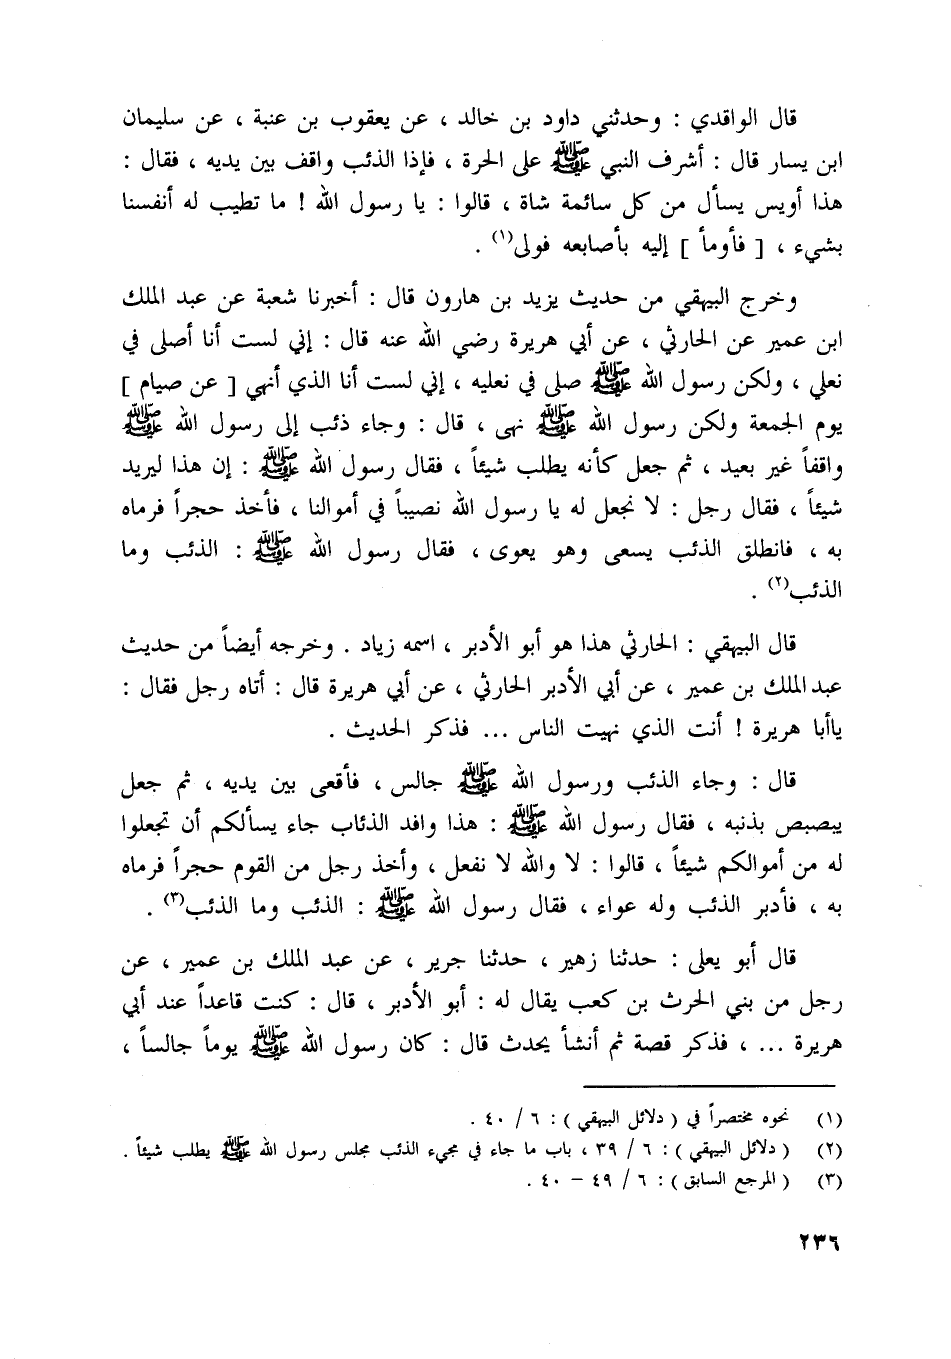 قال الواقدي : وحدثني داود بن خالد ، عن يعقوب بن عنبة ، عن سليمان
ابن يسار قال : أشرف النبي ﷺ على الحرة ، فإذا الذئب واقف بين يديه ، فقال :
هذا أويس يسأل من كل سائمة شاة ، قالوا : يا رسول الله ! ما تطيب له أنفسنا
بشيء ، [ فأومأ ] إليه بأصابعه فولى(١) .
وخرج البيهقي من حديث يزيد بن هارون قال : أخبرنا شعبة عن عبد الملك
ابن عمير عن الحارثي ، عن أبي هريرة رضي الله عنه قال : إني لست أنا أصلى في
نعلي ، ولكن رسول الله ﷺ صلى في نعليه ، إني لست أنا الذي أنهي [ عن صيام ]
يوم الجمعة ولكن رسول الله ﷺ نهى ، قال : وجاء ذئب إلى رسول الله ﷺ
واقفاً غير بعيد ، ثم جعل كأنه يطلب شيئاً ، فقال رسول الله ﷺ : إن هذا ليريد
شيئاً ، فقال رجل : لا نجعل له يا رسول الله نصيباً في أموالنا ، فأخذ حجراً فرماه
به ، فانطلق الذئب يسعى وهو يعوى ، فقال رسول الله ﷺ : الذئب وما
الذئب(٢) .
قال البيهقي : الحارثي هذا هو أبو الأدبر ، اسمه زياد . وخرجه أيضاً من حديث
عبد الملك بن عمير ، عن أبي الأدبر الحارثي ، عن أبي هريرة قال : أتاه رجل فقال :
ياأبا هريرة ! أنت الذي نهيت الناس ... فذكر الحديث .
قال : وجاء الذئب ورسول الله ﷺ جالس ، فأقعى بين يديه ، ثم جعل
يبصبص بذنبه ، فقال رسول الله ﷺ : هذا وافد الذئاب جاء يسألكم أن تجعلوا
له من أموالكم شيئاً ، قالوا : لا والله لا نفعل ، وأخذ رجل من القوم حجراً فرماه
به ، فأدبر الذئب وله عواء ، فقال رسول الله ﷺ : الذئب وما الذئب(٣) .
قال أبو يعلى : حدثنا زهير ، حدثنا جرير ، عن عبد الملك بن عمير ، عن
رجل من بني الحرث بن كعب يقال له : أبو الأدبر ، قال : كنت قاعداً عند أبي
هريرة ... ، فذكر قصة ثم أنشأ يحدث قال : كان رسول الله ﷺ يوماً جالساً ،
(١) نحوه مختصراً في ( دلائل البيهقي ) : ٦ / ٤٠ .
(٢) ( دلائل البيهقي ) : ٦ / ٣٩ ، باب ما جاء في مجيء الذئب مجلس رسول الله ﷺ يطلب شيئاً .
(٣) ( المرجع السابق ) : ٦ / ٤٩ - ٤٠ .
٢٣٦